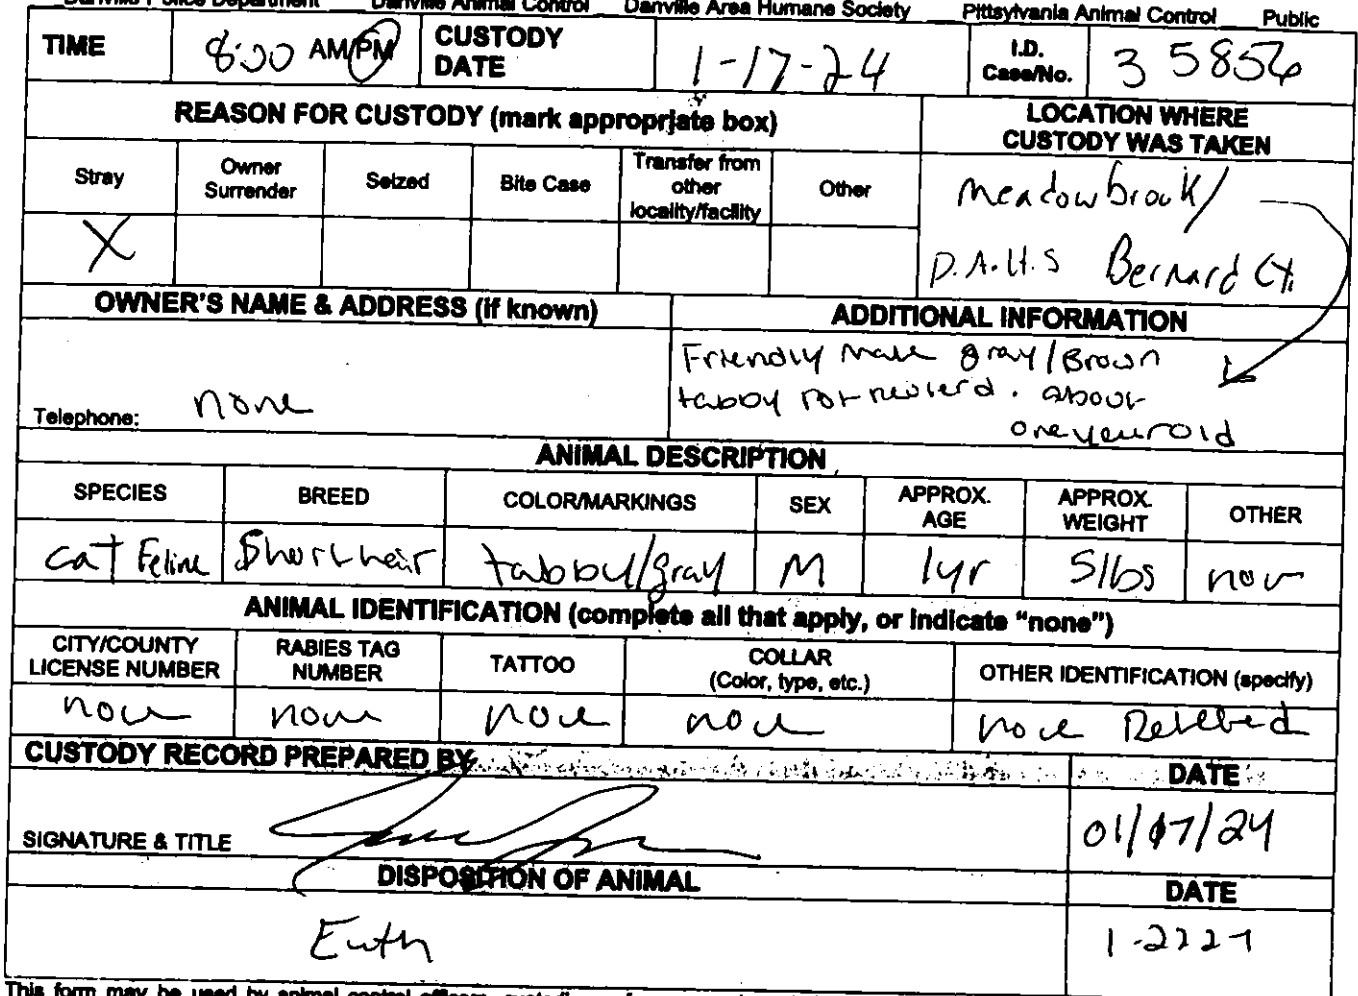 Danville Police Department Danville Animal Control Danville Area Humane Society Pittsylvania Animal Control Public
TIME 8:00 AM/PM CUSTODY DATE 1-17-24 I.D. Case/No. 3 5856
REASON FOR CUSTODY (mark appropriate box) LOCATION WHERE CUSTODY WAS TAKEN
Stray Owner Surrender Seized Bite Case Transfer from other locality/facility Other
X
Meadowbrook/
D.A.H.S Bernard Ct.
OWNER'S NAME & ADDRESS (if known) ADDITIONAL INFORMATION
Friendly Male gray/Brown
tabby not neuterd. about
one year old
Telephone: none
ANIMAL DESCRIPTION
SPECIES BREED COLOR/MARKINGS SEX APPROX. AGE APPROX. WEIGHT OTHER
cat Feline Shorthair tabby/gray M 1yr 5lbs
ANIMAL IDENTIFICATION (complete all that apply, or indicate "none")
CITY/COUNTY LICENSE NUMBER RABIES TAG NUMBER TATTOO COLLAR (Color, type, etc.) OTHER IDENTIFICATION (specify)
none none none none none
CUSTODY RECORD PREPARED BY DATE
SIGNATURE & TITLE 01/17/24
DISPOSITION OF ANIMAL DATE
Euth
This form may be used by animal control officers,